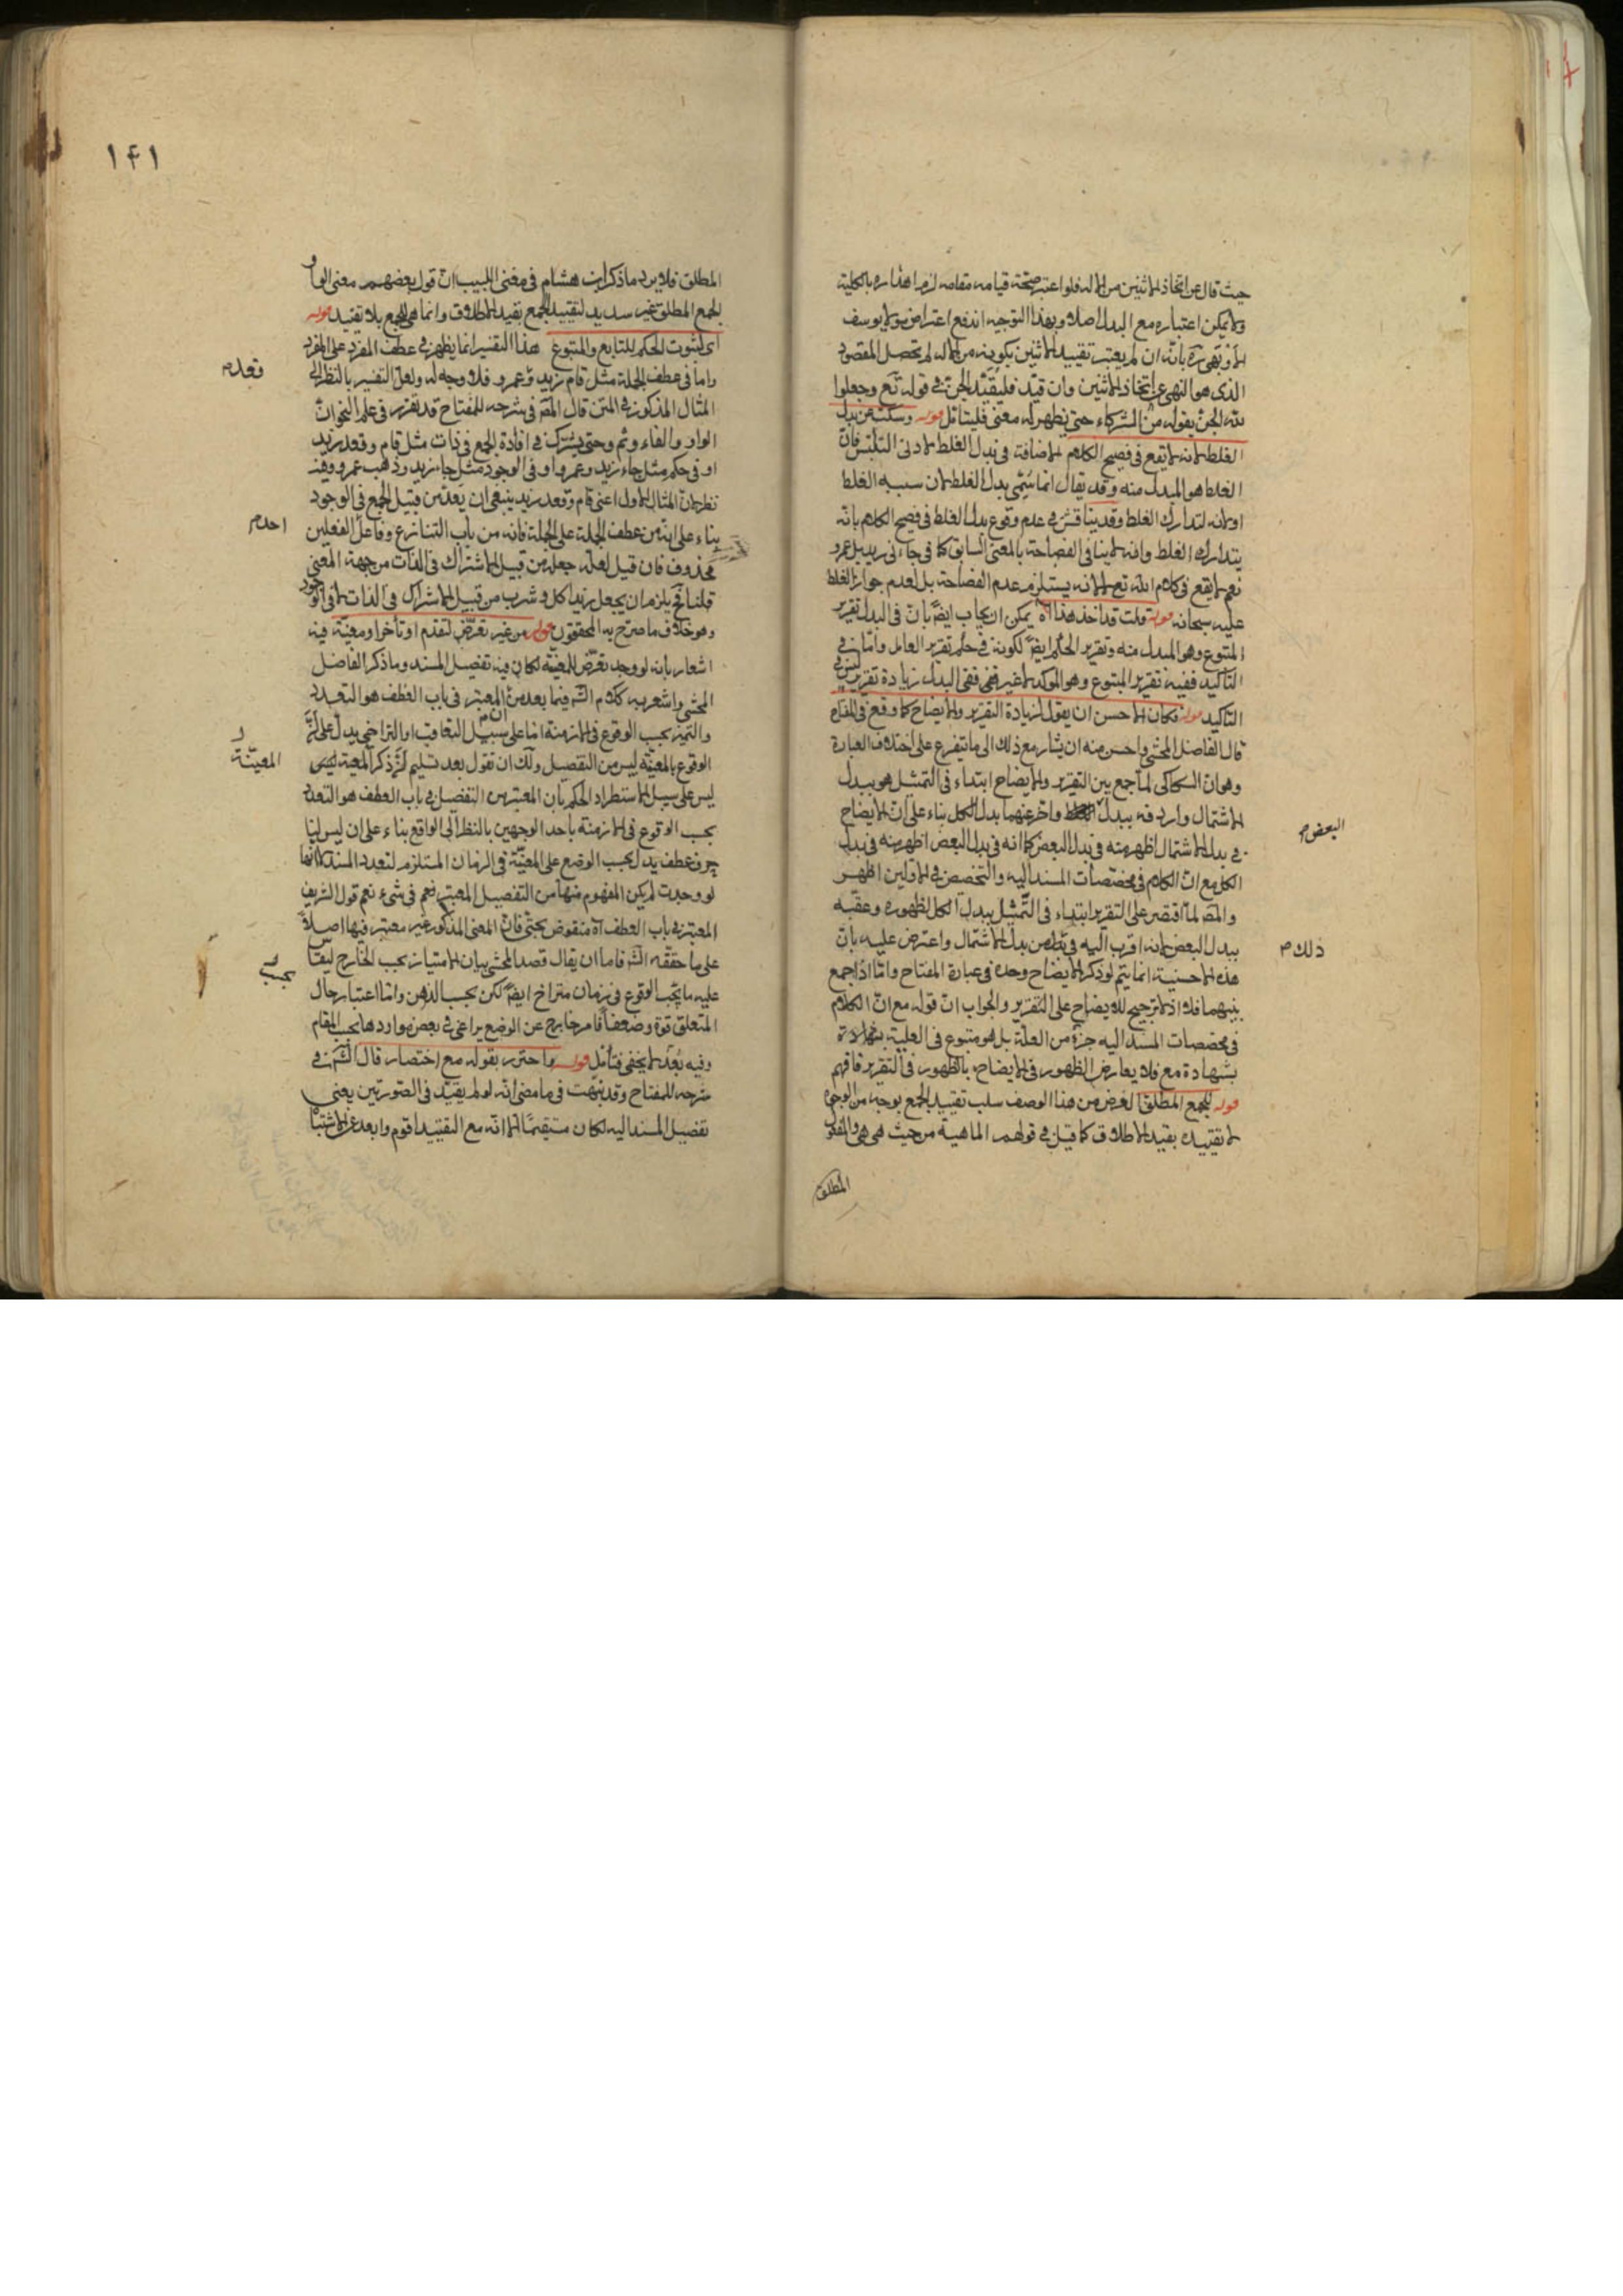 حيث قال عن اتخاذ الاثنين من الاله فلو اعتبر صحة قيامه مقامه لزم اهداره بالكلية
ولا يمكن اعتباره مع البدل اصلا وبهذا التوجيه اندفع اعتراض مولا يوسف
بانه ان لم يعتبر تقييد الاثنين بكونه من الاله لم يحصل المقصود
الذي هو النهي عن اتخاذ الاثنين وان قيد فليقيد الجن في قوله تع وجعلوا
لله الجن بقوله من الشركاء حتى يظهر له معنى فليتأمل قوله وسكت عن بدل
الغلط لانه لا يقع في فصيح الكلام الاضافة في بدل الغلط لادنى التلبس فان
الغلط هو المبدل منه وقد يقال انما سمي بدل الغلط لان سببه الغلط
او لانه لتدارك الغلط وقد يناقش في عدم وقوع بدل الغلط في فصيح الكلام بانه
يتدارك الغلط وانه لا ينافي الفصاحة بالمعنى السابق كما في جاءني زيد بل عمرو
نعم لا يقع في كلام الله تع لا لانه يستلزم عدم الفصاحة بل لعدم جواز الغلط
عليه سبحانه قوله قلت قد اخذ هذا اه يمكن ان يجاب ايضً بان في البدل تقرير
المتبوع وهو المبدل منه وتقرير الحكم ايضً لكونه في حكم تقرير العامل واما في
التأكيد ففيه تقرير المتبوع وهو المؤكد لا غير ففي البدل زيادة تقرير ليس في
التأكيد قوله فكان الاحسن ان يقول لزيادة التقرير والايضاح كما وقع في المفتاح
قال الفاضل المحشي واحسن منه ان يشار مع ذلك الى ما يتفرع على اختلاف العبارة
وهو ان السكاكي لما جمع بين التقرير والايضاح ابتداء في التمثيل هو ببدل
الاشتمال واردفه ببدل واخر عنهما بدل الكل بناء على ان الايضاح
البعض م
في بدل الاشتمال اظهر منه في بدل البعض كما انه في بدل البعض اظهر منه في بدل
الكل مع ان الكلام في مخصصات المسند اليه والتخصص في الاولين اظهر
والمص لما اقتصر على التقرير ابتداء في التمثيل ببدل الكل لظهوره وعقبه
ببدل البعض لانه اقرب اليه في من بدل الاشتمال واعترض عليه بان
ذلك م
هذه الاحسنية انما يتم لو ذكر الايضاح وحده في عبارة المفتاح واما اذا جمع
بينهما فلا اذ لا ترجيح للايضاح على التقرير والجواب ان قوله مع ان الكلام
في مخصصات المسند اليه جزء من العلة بل هو متبوع في العلية بشهادة
بشهادة مع فلا يعارض الظهور في الايضاح بالظهور في التقرير فافهم
قوله للجمع المطلق الغرض من هذا الوصف سلب تقييد الجمع بوجه من الوجوه
لا تقييده بقيد الاطلاق كما قيل في قولهم الماهية من حيث هي هي والمفعول
المطلق
١٤١
المطلق فلا يرد ما ذكر ابن هشام في مغني اللبيب ان قول بعضهم معنى الواو
الجمع المطلق غير سديد لتقييد الجمع بقيد الاطلاق وانما هي للجمع بلا تقييد قوله
اى لثبوت الحكم للتابع والمتبوع هذا التفسير انما يظهر في عطف المفرد على المفرد
واما في عطف الجملة مثل قام زيد وعمرو فلا وجه له ولعل التفسير بالنظر الى
قعد م
المثال المذكور في المتن قال المص في شرحه للمفتاح قد تقرر في علم النحو ان
الواو والفاء وثم وحتى يشترك في افادة الجمع في ذات مثل قام وقعد زيد
او في حكم مثل جاء زيد وعمرو او في الوجود مثل جاء زيد وذهب عمرو وفيه
نظر لان المثال الاول اعني قام وقعد زيد ينبغي ان يعد من قبيل الجمع في الوجود
بناء على انه من عطف الجملة على الجملة فانه من باب التنازع وفاعل الفعلين
احد م
محذوف فان قيل لعله جعله من قبيل الاشتراك في الذات من جهة المعنى
قلنا فح يلزم ان يجعل زيد اكل وشرب من قبيل الاشراك في الذات لا في الوجود
وهو خلاف ما صرح به المحققون قوله من غير تعرض لتقدم او تأخر او معية فيه
اشعار بانه لو وجد تعرض للمعية لكان فيه تفصيل المسند وما ذكر الفاضل
المحشي واشعر به كلام الش فيما بعد من ان المعتبر في باب العطف هو التعدد
والتميز بحسب الوقوع في الازمنة اما على سبيل التعاقب او التراخي يدل على ان
الوقوع بالمعية ليس من التفصيل ولك ان تقول بعد تسليم ان ذكر المعية ليس
المعيّة
ليس على سبيل الاستطراد الحكم بان المعتبر من التفصيل في باب العطف هو التعدد
بحسب الوقوع في الازمنة باحد الوجهين بالنظر الى الواقع بناء على ان ليس لنا
حرف عطف يدل بحسب الوضع على المعية في الزمان المستلزم لتعدد المسند لا انها
لو وجدت لم يكن المفهوم منها من التفصيل المعتبر فهم في شيء نعم قول الشريف
المعتبر في باب العطف اه منقوض بحتى فان المعنى المذكور غير معتبر فيها اصلا
على ما حققه الش فاما ان يقال قصد المحشي بيان الامتياز بحسب الخارج ليقاس
بحسب
عليه ما بحسب الوقوع في زمان متراخ ايضً لكن بحسب الذهن واما اعتبار حال
المتعلق قوة وضعفا فامر خارج عن الوضع يراعى في بعض مواردها بحسب المقام
وفيه بعد لا يخفى فتأمل قوله واحترز بقوله مع اختصار قال الش في
شرحه للمفتاح وقد نبهت في ما مضى انه لو لم يقيد في الصورتين يعني
تفصيل المسند اليه لكان مستقيما الا انه مع التقييد اقوم وابعد عن الاشتباه